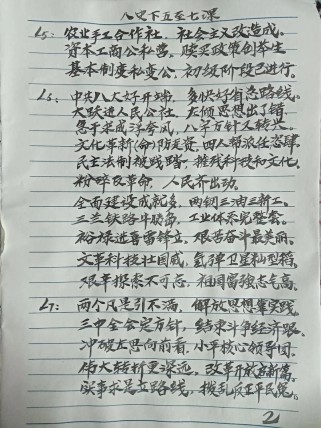 八史下五至七课
L5: 农业手工合作社, 社会主义改造成。
资本工商公私营, 赎买政策创举生
基本制度私变公, 初级阶段已进行。
L6: 中共八大好开端, 多快好省总路线。
大跃进人民公社, 左倾思想出了错
急于求成浮夸风, 八字方针又转兴。
文化革新(命)防走资, 四人帮派任恣肆
民主法制被践踏, 摧残科技和文化。
粉碎反革命, 人民齐出动。
全面建设成就多, 两钢三油三新工。
三兰铁路牛脖高, 工业体系完整套。
裕禄进喜雷锋立, 艰苦奋斗最美丽。
文革科技社国威, 氢弹卫星籼型稻。
艰辛探索不可忘, 祖国富强志气高。
L7: 两个凡是引不满, 解放思想靠实践
三中全会定方针, 结束斗争经济跟。
冲破左思向前看, 小平核心领导团。
伟大转折更深远, 改革开放启新篇。
实事求是立路线, 拨乱反正平民冤。
2